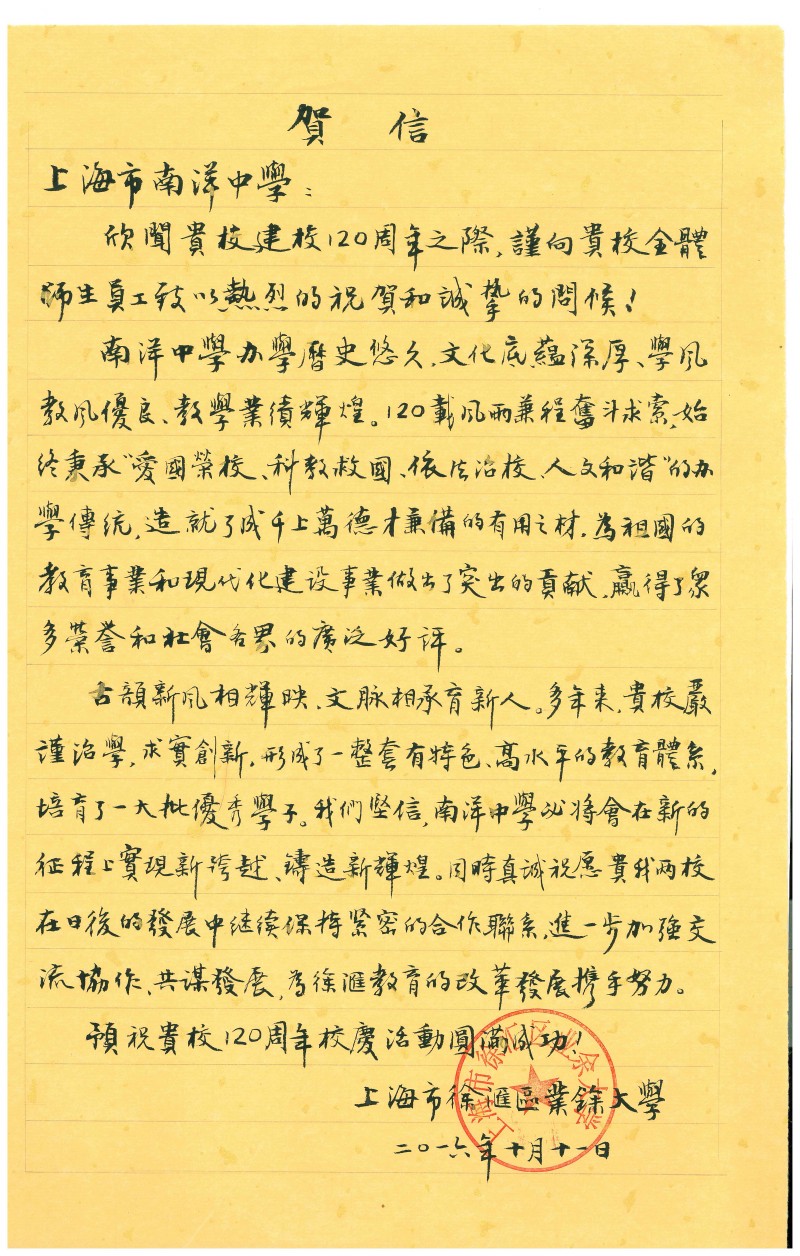 賀信
上海市南洋中學：
欣聞貴校建校120周年之際,謹向貴校全體
師生員工致以熱烈的祝贺和誠摯的問候！
南洋中學办學曆史悠久、文化底蘊深厚、學風
教风優良、教學業績輝煌。120載风雨兼程奮斗求索,始
终秉承“愛國榮校、科教救國、依法治校、人文和谐”的办
學傳统,造就了成千上萬德才兼備的有用之材,為祖國的
教育事業和現代化建设事業做出了突出的貢献,赢得了眾
多荣誉和社會各界的廣泛好评。
古韻新风相輝映、文脉相承育新人。多年来,貴校嚴
謹治學,求實創新,形成了一整套有特色、高水平的教育體系,
培育了一大批優秀學子。我們堅信,南洋中學必将會在新的
征程上實現新跨越、鑄造新輝煌。同時真诚祝愿貴我两校
在日後的發展中继续保持紧密的合作聯系,進一步加強交
流協作、共谋發展,為徐滙教育的改革發展攜手努力。
預祝貴校120周年校慶活動圓满成功！
上海市徐滙區業餘大學
二〇一六年十月十一日
上海市徐汇区业余大学